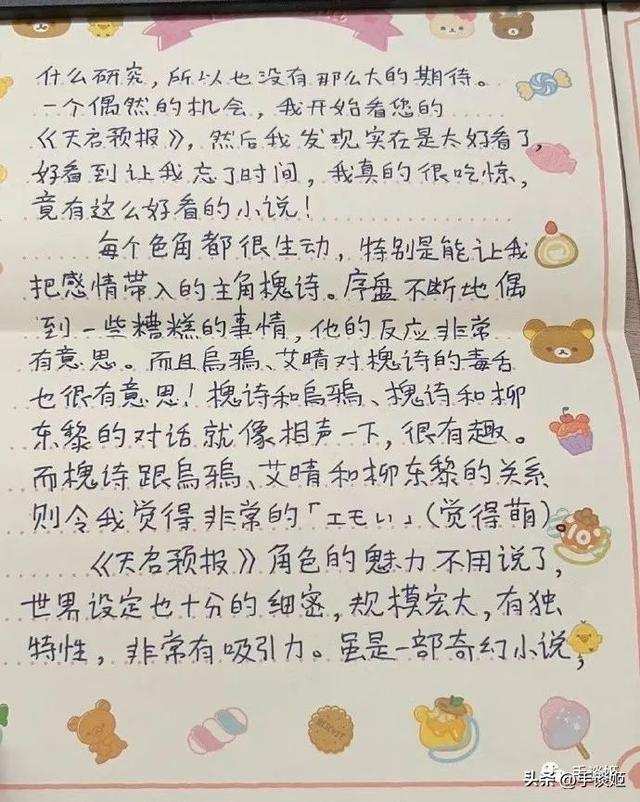 什么研究，所以也没有那么大的期待。
一个偶然的机会，我开始看您的
《天启预报》，然后我发现实在是太好看了，
好看到让我忘了时间，我真的很吃惊，
竟有这么好看的小说！
每个色角都很生动，特别是能让我
把感情带入的主角槐诗。序盘不断地偶
到一些糟糕的事情，他的反应非常
有意思。而且烏鴉、艾晴对槐诗的毒舌
也很有意思！槐诗和烏鴉、槐诗和柳
东黎的对话就像相声一下，很有趣。
而槐诗跟烏鴉、艾晴和柳东黎的关系
则令我觉得非常的「エモい」（觉得萌）。
《天启预报》角色的魅力不用说了，
世界设定也十分的细密，规模宏大，有独
特性，非常有吸引力。虽是一部奇幻小说，
BISCUIT
手谈姬
头条@手谈姬